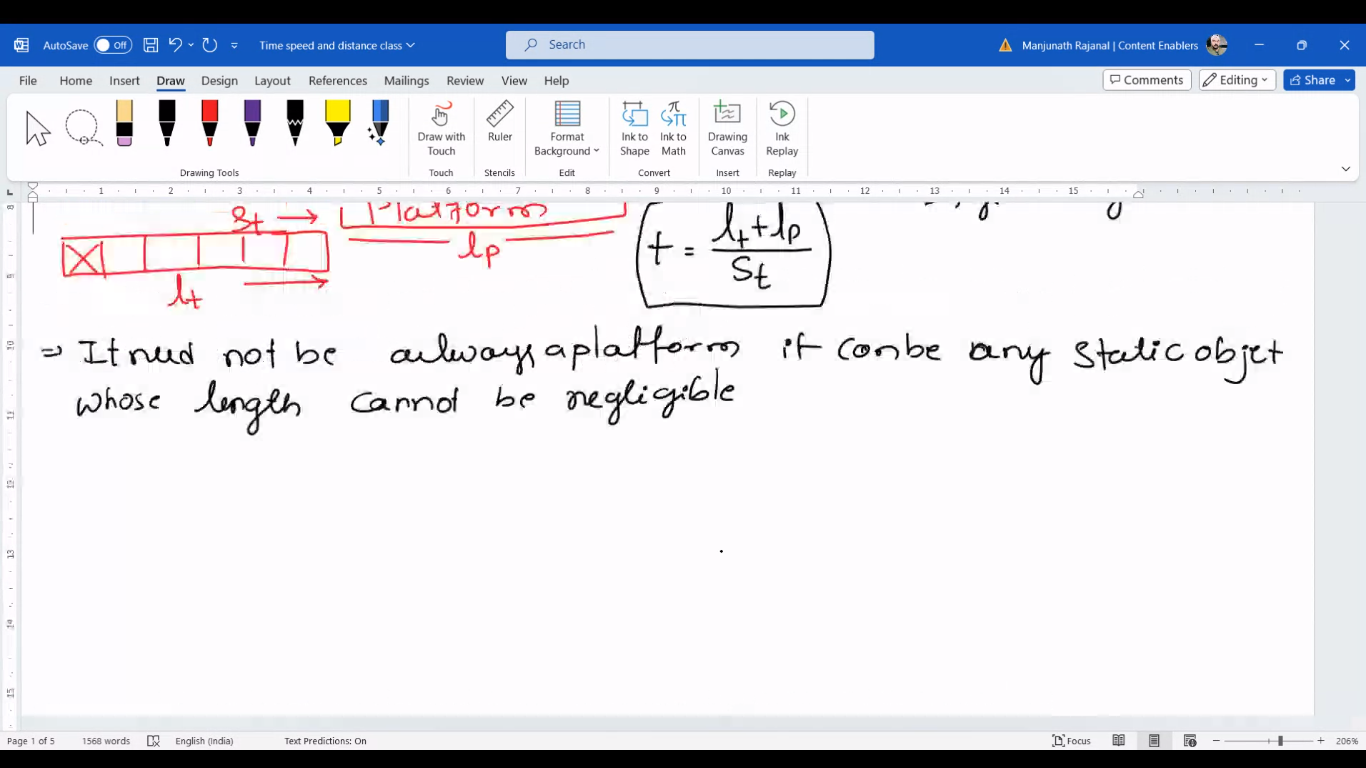 AutoSave Off Time speed and distance class Search Manjunath Rajanal | Content Enablers
File Home Insert Draw Design Layout References Mailings Review View Help Comments Editing Share
Draw with Touch Ruler Format Background Ink to Shape Ink to Math Drawing Canvas Ink Replay
Drawing Tools Touch Stencils Edit Convert Insert Replay
1 2 3 4 5 6 7 8 9 10 11 12 13 14 15
St → Platform
lp
lt
t = lt+lp / St
⇒ It need not be always a platform it can be any static objet
whose length cannot be negligible
8
9
10
11
12
13
14
15
Page 1 of 5 1568 words English (India) Text Predictions: On Focus 206%